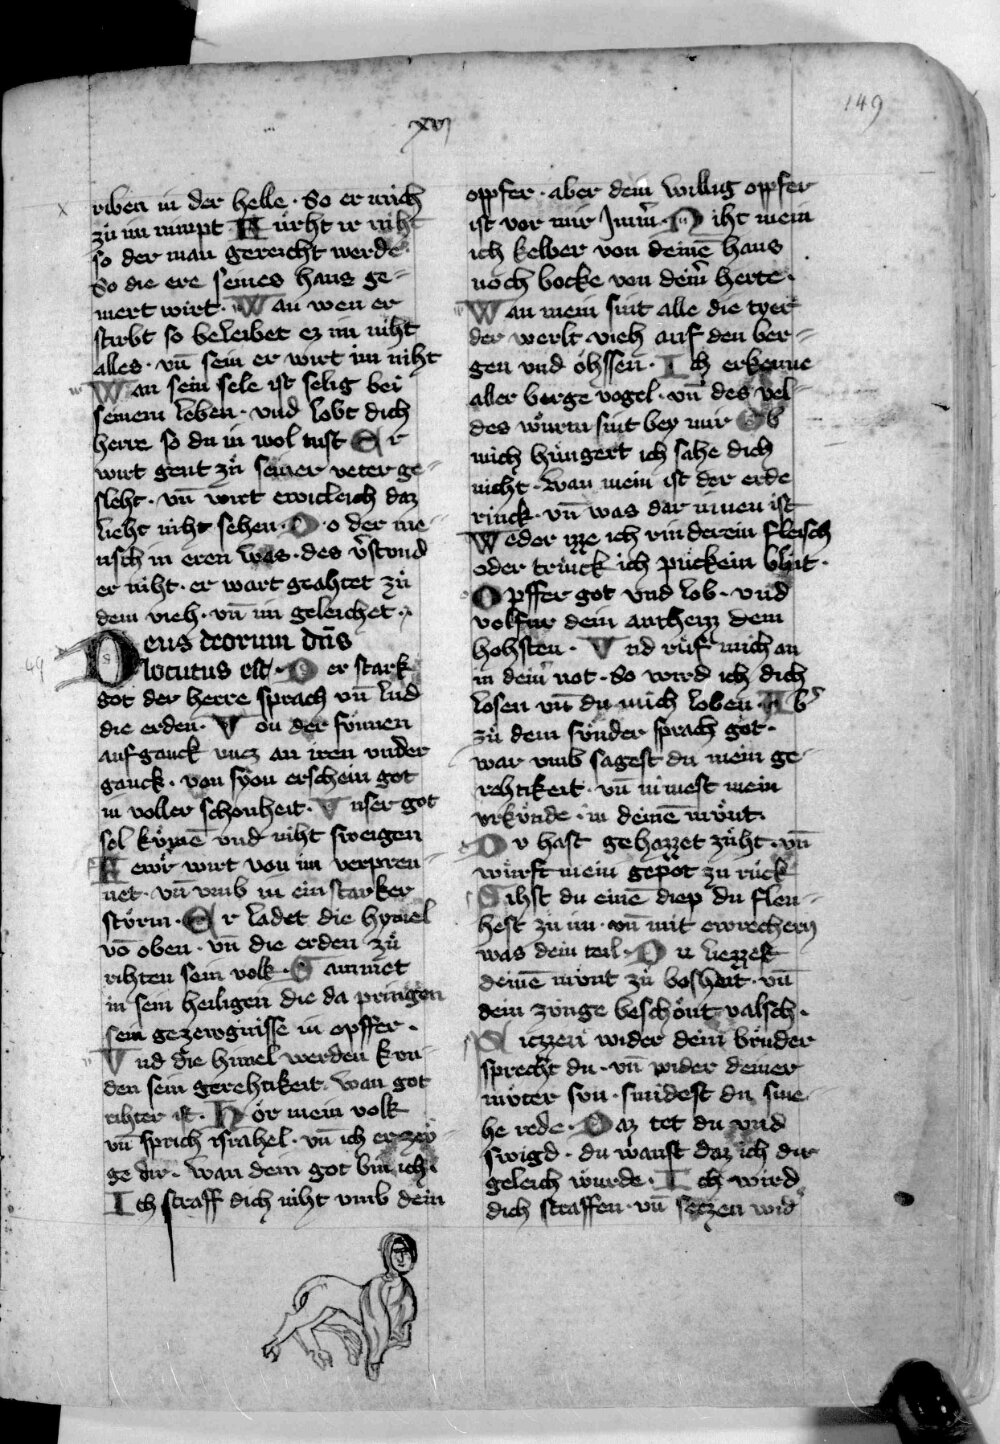 149
xvj
riben in der helle · So er mich
zu im nimpt Fürht ir niht
so der man gereicht werde
So die ere seines haus ge-
mert wirt · Wan wen er
stirbt so beleibet ez im niht
alles · vn̄ sein er wirt im niht
Wan sein sele ist selig bei
seinem leben · vnd lobt dich
herre so du in wol tust Er
wirt gent zů seiner veter ge-
sleht · vn̄ wirt ewicleich daz
lieht niht sehen · Do der me-
nsch in eren was · des v̓stond
er niht · er wart geahtet zů
dem vieh · vn̄ im geleichet ·
49
Deus deorum dn̄s
locutus est · Der stark
got der herre sprach vn̄ lud
die erden · Von der sunnen
aufganck vncz an iren vnder
ganck · von syon erschein got
in voller schonheit · Vnser got
sol kumē vnd niht sweigen
Fewr wirt von im verpren-
net · vn̄ vmb in ein starker
sturm · Er ladet die hymel
vō oben · vn̄ die erden zů
rihten sein volk · Sammet
in sein heiligen die da pringen
sein gezewgnisse in opffer ·
Vnd die himel werden kun-
den sein gerehtikeit · wan got
rihter ist · Hör mein volk
vn̄ sprich israhel · vn̄ ich erzeu-
ge dir · wan dein got bin ich ·
Ich straff dich niht vmb dein
opffer · aber dein willig opffer
ist vor mir Imm̄ · Niht mein
ich kelber von deinē haus
noch bocke von dein̄ herte ·
Wan mein sint alle die tyer
der werlt vieh auf den ber-
gen vnd ohssen · Ich erkenne
aller berge vogel · vn̄ des vel-
des würm sint bey mir Ob
mich hüngert ich sahe dich
nicht · wan mein ist der erde
rinck · vn̄ was dar innen ist
Weder izze ich rinderein fleisch
oder trinck ich pückein blut ·
Opffer got vnd lob · vnd
volfur dein antheiz dem
hohsten · Vnd rüf mich an
in dein̄ not · So wird ich dich
losen vn̄ du mich loben · Ab̓
zů dem sünder sprach got ·
war vmb sagest du mein ge-
rehtikeit · vn̄ nimest mein
vrkünde · in deinē mönt ·
Dv hast gehazzet züht · vn̄
würft mein gepot zu rück
Sihst du einē diep du fleu-
hest zů im · vn̄ mit ewrechern
was dein teil · Du liezzest
deinē mönt zů bosheit · vn̄
dein zunge beschönt valsch ·
Siczzen wider dein brüder
sprecht du · vn̄ wider deiner
müter sun · smidest du sme-
he rede · Daz tet du vnd
swigd · du wanst daz ich dir
geleich würde · Ich wird
dich straffen · vn̄ seczen wid̓